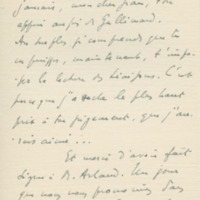 jamais, mon cher Jean, ton
affreux ami de Gallimard.
Au plus je comprends que tu
ne puisses, maintenant, t'impo-
ser la lecture des C'est
parce que j'attache le plus haut
prix à ton jugement, que j'au-
rais aimé...
Et merci d'avoir fait
signe à M. Arland. Un jour
que nous nous promenions dans